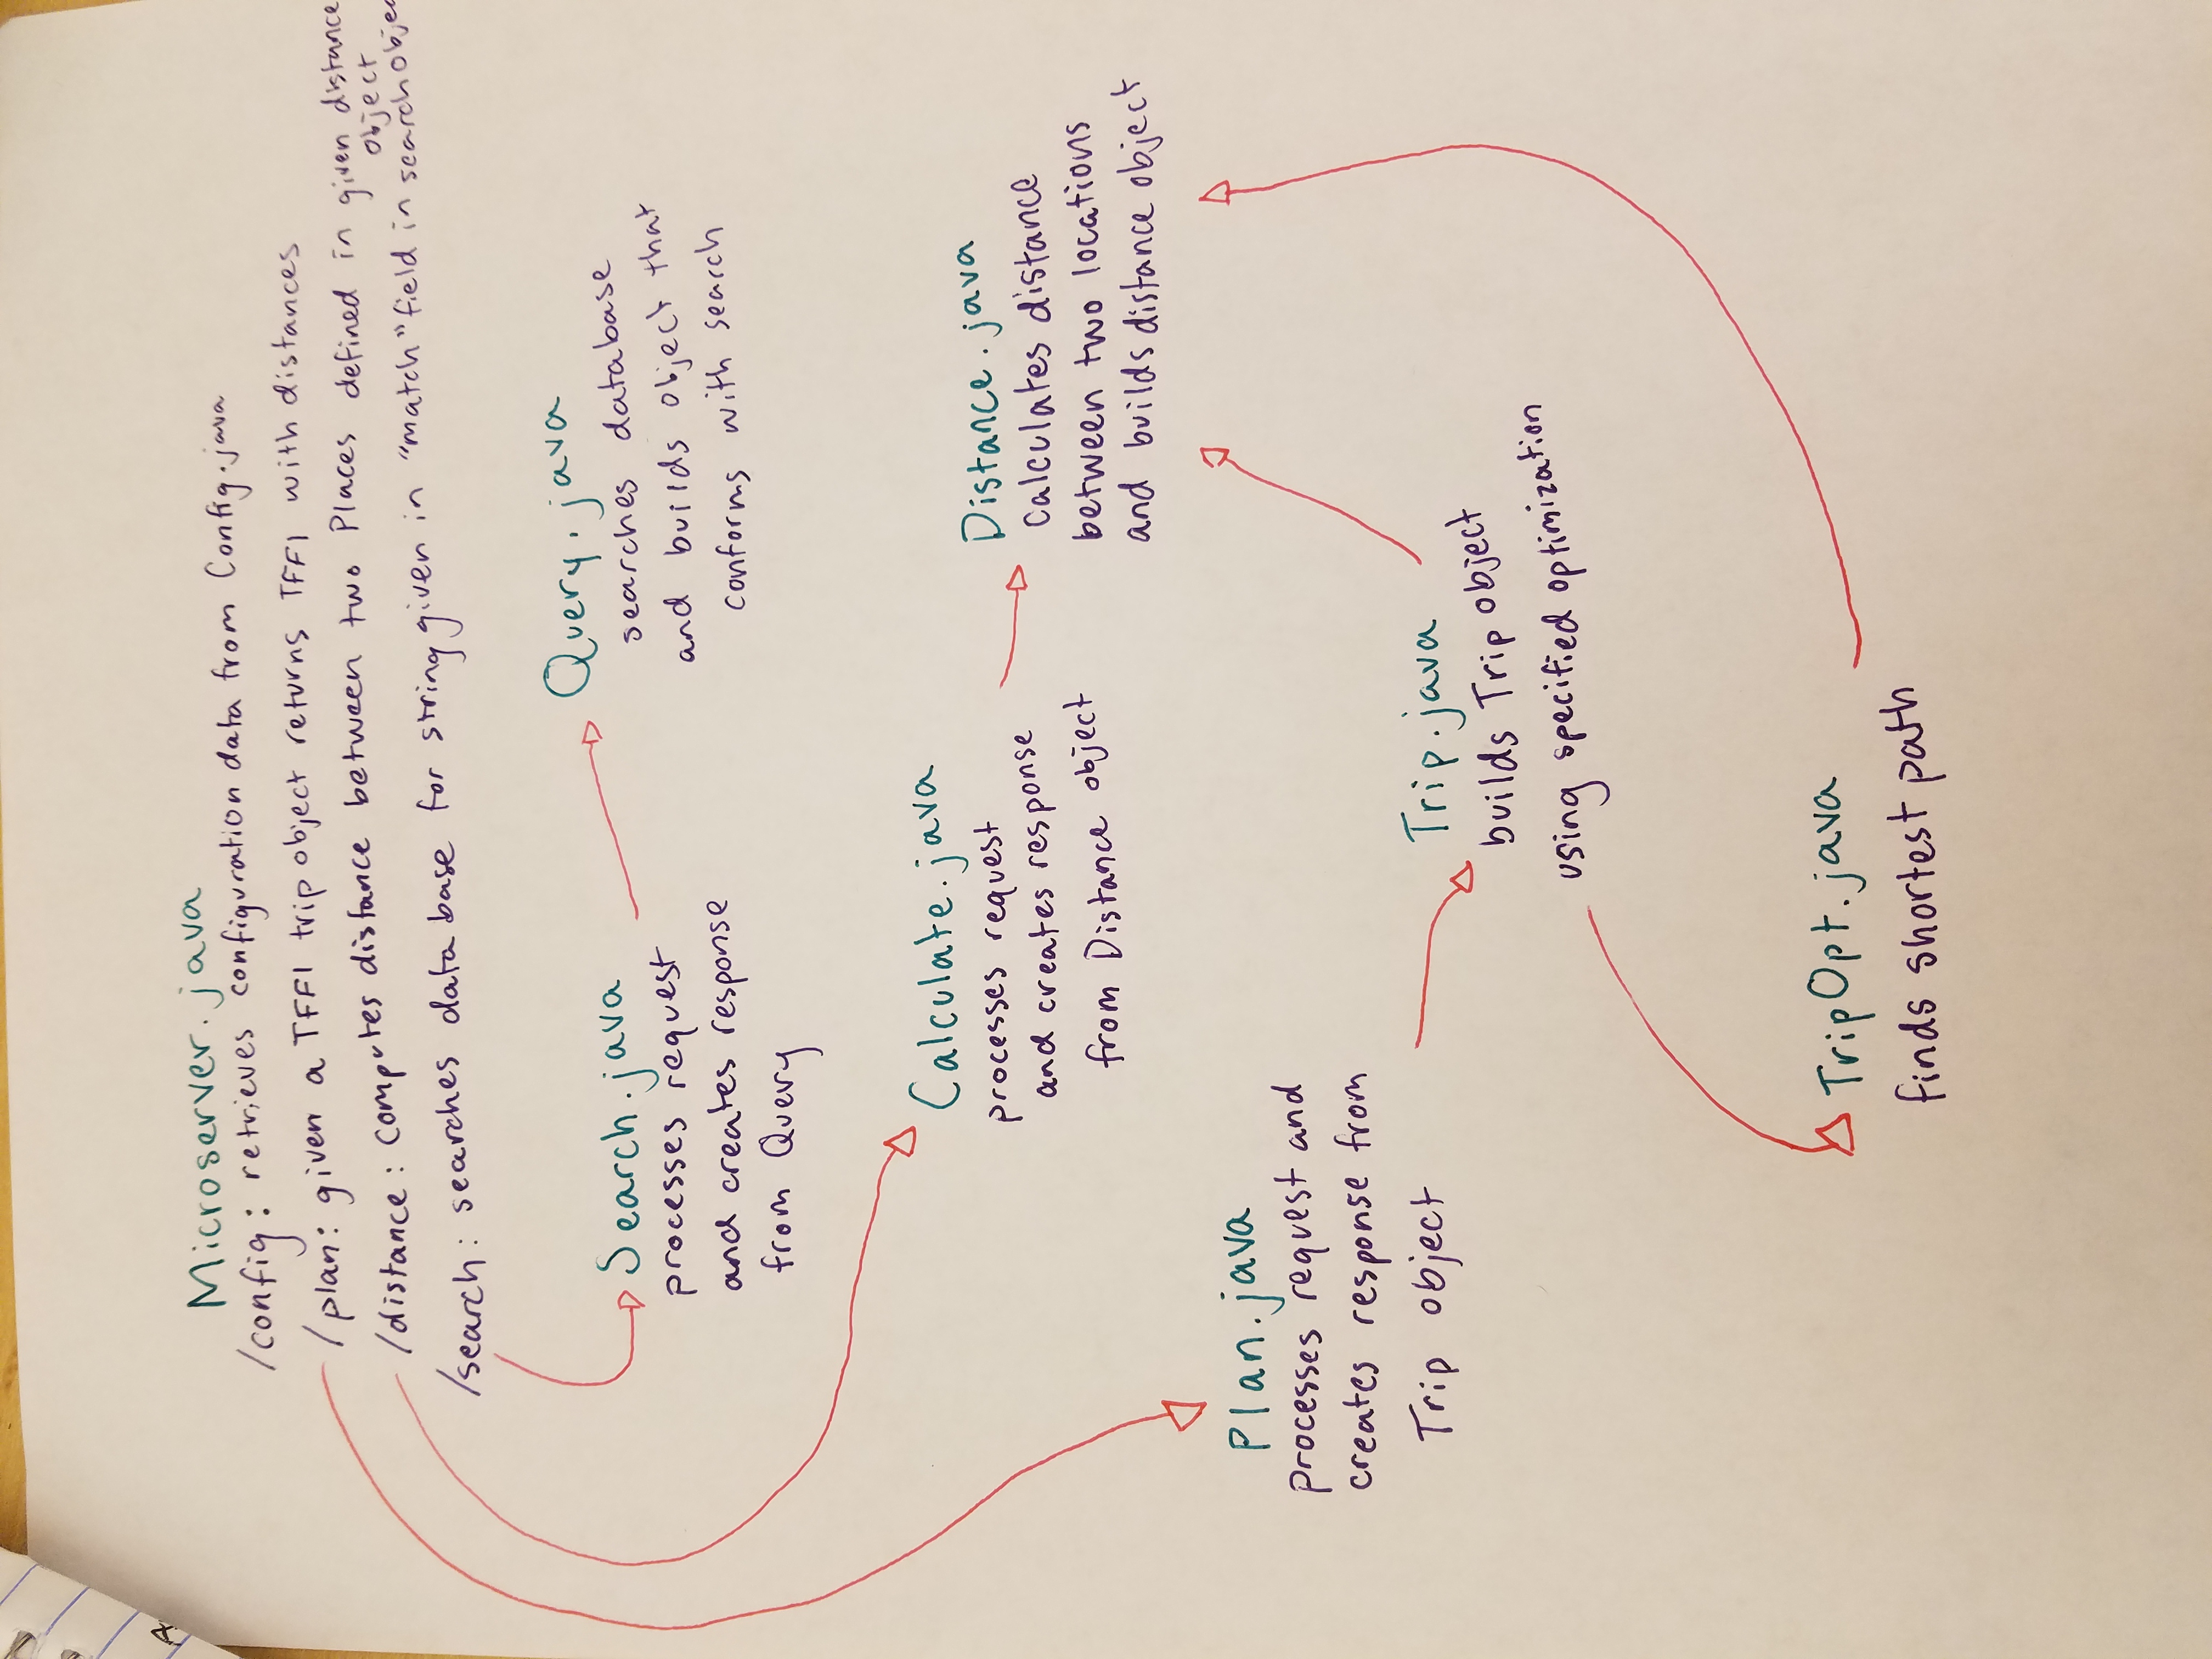 A
Microserver.java
/config: retrieves configuration data from Config.java
/plan: given a TFFI trip object returns TFFI with distances
/distance: computes distance between two Places defined in given distance
object
/search: searches database for string given in "match" field in search objec
Search.java
processes request
and creates response
from Query
Query.java
searches database
and builds object that
conforms with search
Calculate.java
processes request
and creates response
from Distance object
Distance.java
calculates distance
between two locations
and builds distance object
Plan.java
processes request and
creates response from
Trip object
Trip.java
builds Trip object
using specified optimization
TripOpt.java
finds shortest path